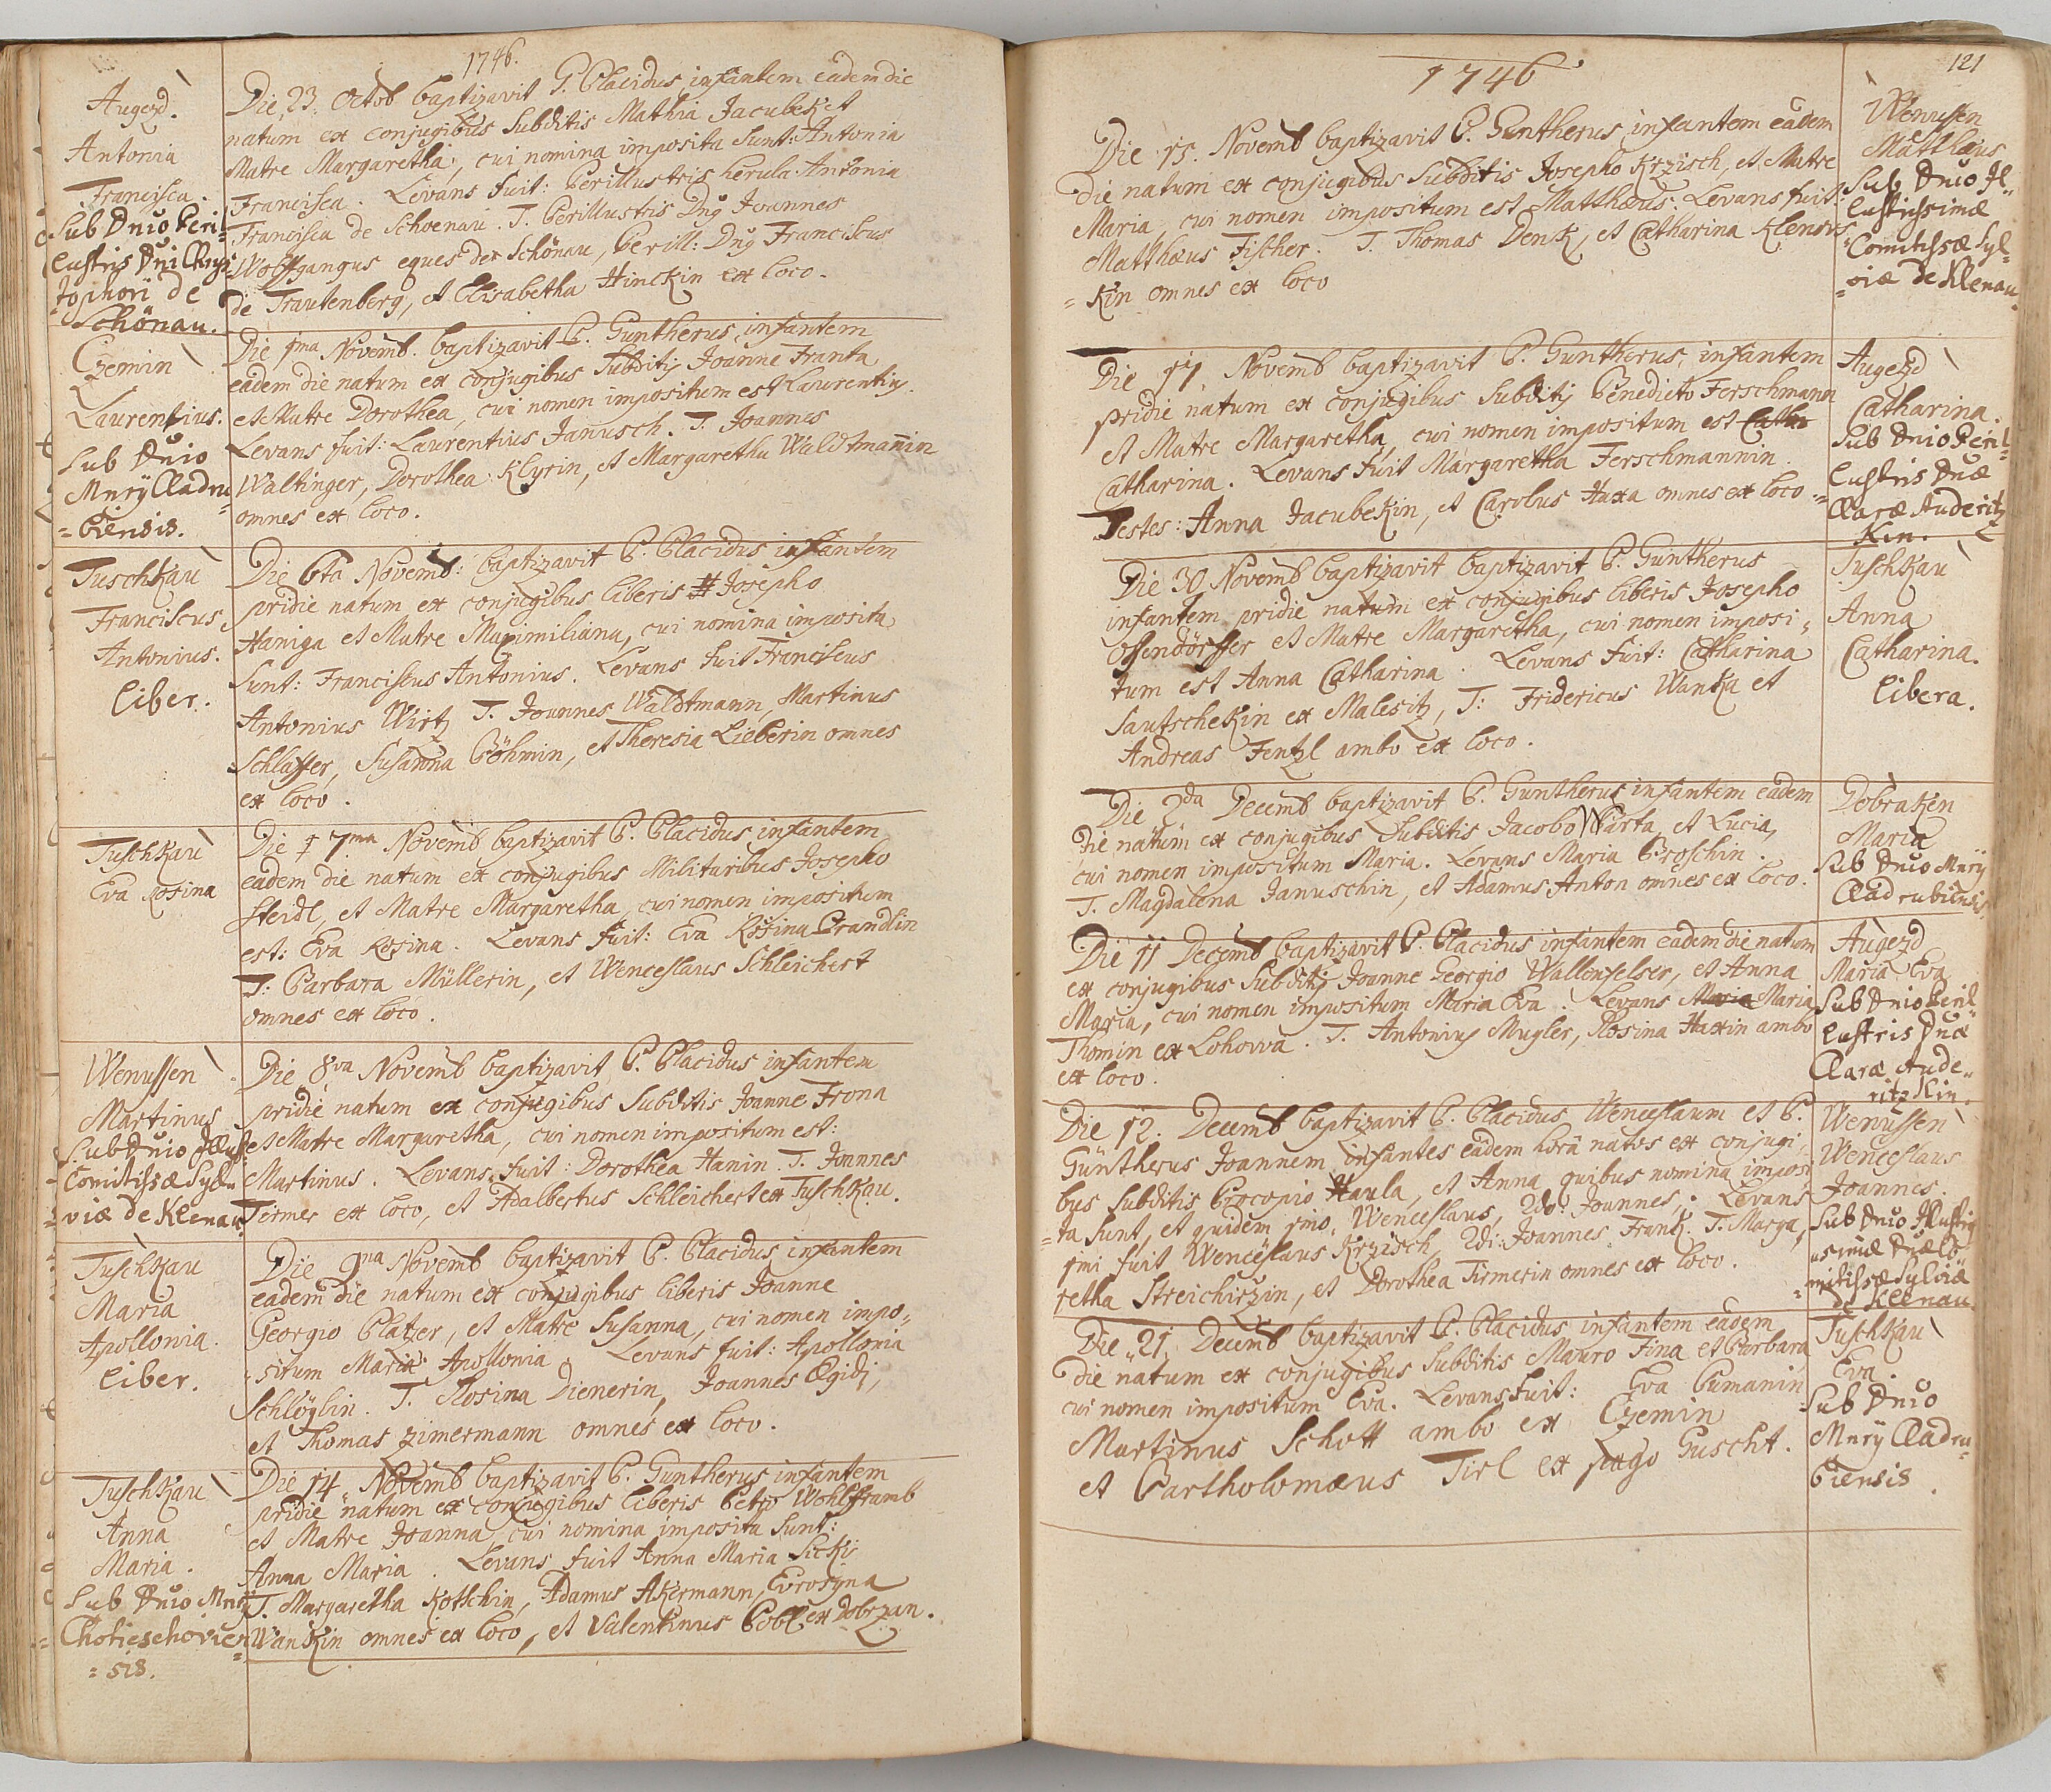 1746.
Augezd.
Antonia
Francisca.
Sub Dnio Peril-
lustris Dni Chrys
tophori de
Schönau.
Die 23. Octob baptizavit P. Placidus infantem eadem die
natum ex conjugibus Subditis Mathia Jacubek et
Matre Margaretha, cui nomina imposita sunt: Antonia
Francisca. Levans fuit: Perillustris herula Antonia
Francisca de Schoenau. T. Perillustris Dnġ Joannes
Wolffgangus eques de Schönau, Perill: Dnġ Franciscus
de Trautenberg, et Elisabetha Hinckin ex loco.
Czemin
Laurentius.
Sub Dnio
Mnrÿ Cladru
=biensis.
Die 1ma Novemb. baptizavit P. Guntherus infantem
eadem die natum ex conjugibus Subditÿ Joanne Franta
et Matre Dorothea, cui nomen impositum est Laurentiÿ.
Levans fuit: Laurentius Janusch. T. Joannes
Waltinger, Dorothea Klyrin, et Margaretha Waldtmannin
omnes ex loco.
Tuschkau
Franciscus
Antonius.
liber.
Die 6ta Novemb: baptizavit P. Placidus infantem
pridie natum ex conjugibus liberis Josepho
Haniga et Matre Maximiliana, cui nomina imposita
sunt: Franciscus Antonius. Levans fuit Franciscus
Antonius Wirtz T. Joannes Waldtmann, Martinus
Schlasser, Susanna Böhmin, et Theresia Lieberin omnes
ex loco.
Tuschkau
Eva Rosina
Die 7ma Novemb baptizavit P. Placidus infantem
eadem die natum ex conjugibus Militaribus Josepho
Steidl, et Matre Margaretha, cui nomen impositum
est: Eva Rosina. Levans fuit: Eva Rosina Brandlin
T: Barbara Müllerin, et Wenceslaus Schleichert
omnes ex loco.
Wenussen
Martinus
Sub Dnio Illust
Comitissæ Syl-
viæ de Klenau
Die 8va Novemb baptizavit P. Placidus infantem
pridie natum ex conjugibus Subditis Joanne Frona
et Matre Margaretha, cui nomen impositum est:
Martinus. Levans fuit: Dorothea Hanin. T. Joannes
Tirmer ex loco, et Adalbertus Schleichert ex Tuschkau.
Tuschkau
Maria
Apollonia.
liber.
Die 9na Novemb baptizavit P. Placidus infantem
eadem die natum ex conjugibus liberis Joanne
Georgio Platzer, et Matre Susanna, cui nomen impo=
=situm Maria Apollonia. Levans fuit: Apollonia
Schlöglin. T. Rosina Dienerin, Joannes Ægidj,
et Thomas Zimermann omnes ex loco.
Tuschkau
Anna
Maria.
Sub Dnio Mnrÿ
Chotieschovien
=sis.
Die 14 Novemb baptizavit P. Guntherus infantem
pridie natum ex conjugibus liberis Petro Wohlframb
et Matre Joanna, cui nomina imposita sunt:
Anna Maria. Levans fuit Anna Maria Sicki
T. Margaretha Kottchin, Adamus Akermann, Evrosyna
Wankin omnes ex loco, et Valentinus Pöbl ex Dobrzan.
1746
121
Die 15. Novemb baptizavit P. Guntherus infantem eadem
die natum ex conjugibus Subditis Josepho Krzisch, et Matre
Maria, cui nomen impositum est Matthæus. Levans fuit
Matthæus Fischer. T. Thomas Denk, et Catharina Klenovs
=kin omnes ex loco
Wenussen
Matthæus
Sub Dnio Il-
lustrissimæ
Comitissæ Syl=
=viæ de Klenau
Die 17 Novemb baptizavit P. Guntherus infantem
pridie natum ex conjugibus Subditÿ Benedicto Ferschmann
et Matre Margaretha, cui nomen impositum est Catha
Catharina. Levans fuit Margaretha Ferschmannin.
Testes: Anna Jacubekin, et Carolus Haxa omnes ex loco
Augezd
Catharina.
Sub Dnio Peril
lustris Dnæ
Claræ Auderitz
Kin.
Die 30 Novemb baptizavit baptizavit P. Guntherus
infantem pridie natum ex conjugibus liberis Josepho
Ossendörffer et Matre Margaretha, cui nomen imposi=
tum est Anna Catharina. Levans fuit: Catharina
Sautschekin ex Malesitz, T: Fridericus Wanka et
Andreas Fentzl ambo ex loco.
Tuschkau
Anna
Catharina.
libera.
Die 2da Decemb baptizavit P. Guntherus infantem eadem
die natum ex conjugibus Subditis Jacobo Warta et Lucia,
cui nomen impositum Maria. Levans Maria Broschin.
T. Magdalena Januschin, et Adamus Anton omnes ex loco.
Dobraken
Maria
Sub Dnio Mnrÿ
Cladrubiensis
Die 11 Decemb baptizavit P. Placidus infantem eadem die natum
ex conjugibus Subditÿ Joanne Georgio Wallenfelser, et Anna
Maria, cui nomen impositum Maria Eva. Levans Maria Maria
Thomin ex Lohowa. T. Antoniÿ Mugler, Rosina Haxin ambo
ex loco.
Augezd
Maria Eva
Sub Dnio Peril=
lustris Dnæ
Claræ Aude=
ritzkin.
Die 12. Decemb baptizavit P. Placidus Wenceslaum et P.
Güntherus Joannem infantes eadem hora natos ex conjugi-
bus Subditis Procopio Haula, et Anna, quibus nomina imposi
=ta sunt, et quidem 1mo. Wenceslaus, 2do: Joannes,. Levans
1mi fuit Wenceslaus Krzisch, 2di: Joannes Frank. T. Marga,
retha Streichirzin, et Dorothea Tirmerin omnes ex loco.
Wenussen
Wenceslaus
Joannes.
Sub Dnio Illustris
simæ Dnæ Co
mitissæ Sylviæ
de Klenau.
Die 21. Decemb baptizavit P. Placidus infantem eadem
die natum ex conjugibus Subditis Mauro Fina et Barbara,
cui nomen impositum Eva. Levans fuit: Eva Bumanin
Martinus Schott ambo ex Czemin
et Bartholomæus Tirl ex pago Guscht.
Tuschkau
Eva.
Sub Dnio
Mnrÿ Cladru=
biensis.